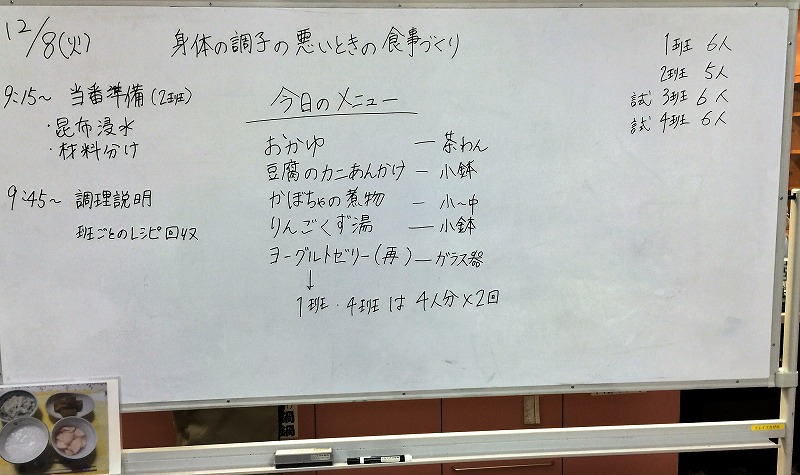 12/8(火)
身体の調子の悪いときの食事づくり
9:15~ 当番準備(2班)
・昆布浸水
・材料分け
9:45~ 調理説明
班ごとのレシピ回収
今日のメニュー
おかゆ — 茶わん
豆腐のカニあんかけ — 小鉢
かぼちゃの煮物 — 小~中
りんごくず湯 — 小鉢
ヨーグルトゼリー(再) — ガラス器
↓
1班・4班は4人分×2回
1班 6人
2班 5人
試 3班 6人
試 4班 6人